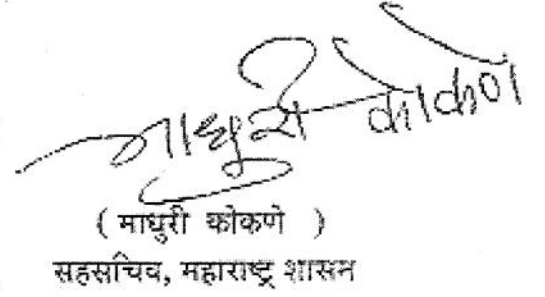 माधुरी कोकणे
( माधुरी कोकणे )
सहसचिव, महाराष्ट्र शासन